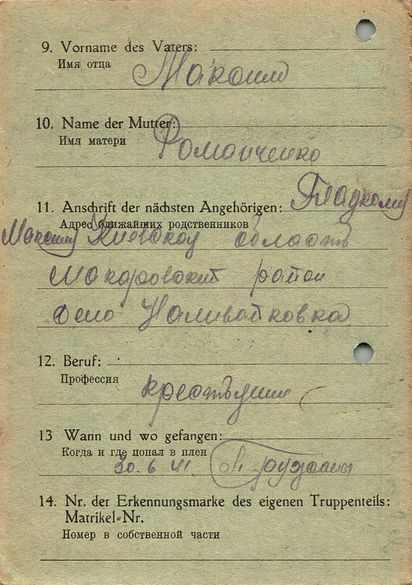 9. Vorname des Vaters:
Имя отца
Максим
10. Name der Mutter:
Имя матери
Романченко
11. Anschrift der nächsten Angehörigen: Гладкому
Адрес ближайших родственников
Максиму Киевской область
Макаровский район
село Наливайковка
12. Beruf:
Профессия
крестьянин
13 Wann und wo gefangen:
Когда и где попал в плен
30.6.41.
14. Nr. der Erkennungsmarke des eigenen Truppenteils:
Matrikel-Nr.
Номер в собственной части